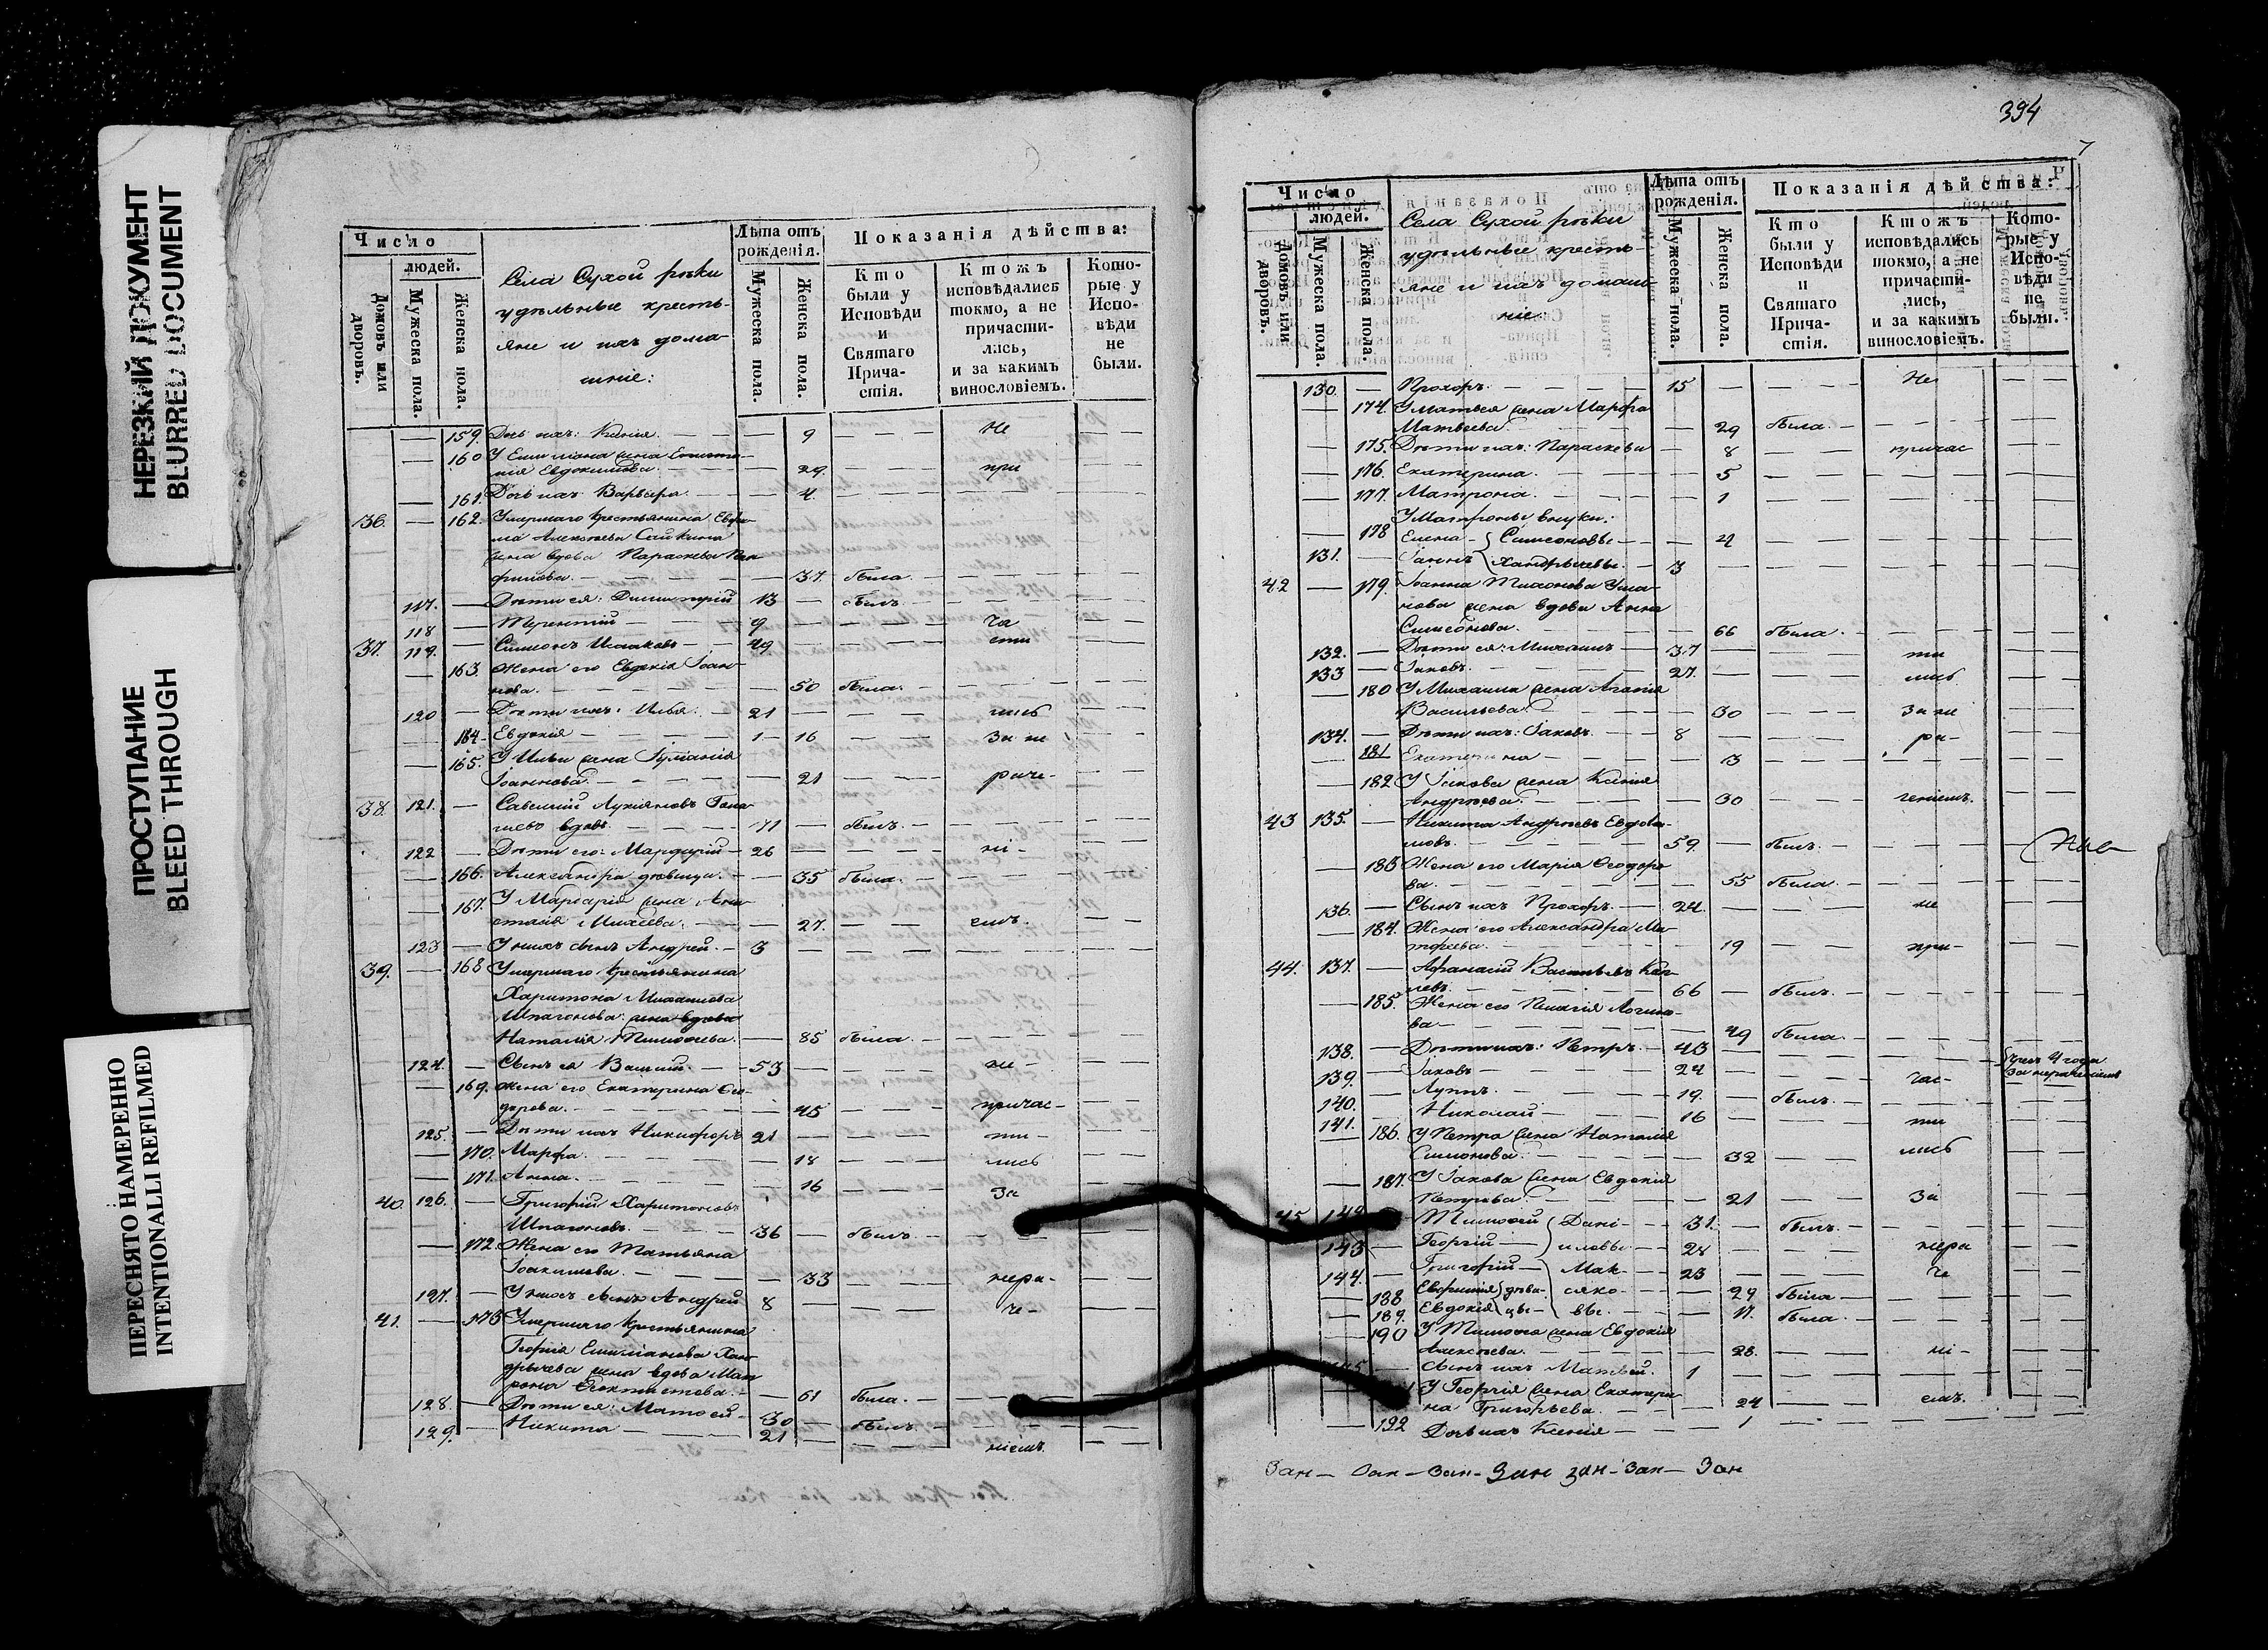 НЕРЕЗКИЙ ДОКУМЕНТ
BLURRED DOCUMENT
ПРОСТУПАНИЕ
BLEED THROUGH
ПЕРЕСНЯТО НАМЕРЕННО
INTENTIONALLI REFILMED
Число
людей.
Домовъ или дворовъ.
Мужеска пола.
Женска пола.
Села Сухой рѣки
удѣльные кресть-
яне и ихъ дома-
шніе:
Лѣта отъ рожденія.
Мужеска пола.
Женска пола.
Показанія дѣйства:
Кто были у Исповѣди и Святаго Прича-стія.
Ктожъ исповѣдались токмо, а не причасти-лись, и за какимъ винословіемъ.
Кото-рые у Испо-вѣди не были.
159. Дочь ихъ: Ксенія. — — 9 — — Не — —
160 У Емиліана жена
Евдокимова. — — 29. — — при — —
161. Дочь ихъ Варвара. — — 4. — — — —
36. — 162. Умершаго крестьянина
Алексѣева Сайкина
жена вдова Параскева
— 37. была. — — —
117. — Дѣти ея: Димитрій 13 — былъ — — —
118 — Терентій — 9 — — — ча — —
37. 119. — Симеонъ Исааковъ — 49 — — — сти — —
— 163. Жена его Евдокія Іоан-
нова. — — 50 была. — — —
120 — Дѣти ихъ: Илья. — 21 — — — лись — —
164. Евдокія — — 16 — — За не — —
— 165. У Ильи жена Іуліанія
Іоаннова. — — 21 — — раче- — —
38. 121. — Савелій Лукіяновъ
вдовъ. — 71 — былъ. — — —
122 — Дѣти его: Мардарій — 26 — — — ні- — —
— 166. Александра дѣвица. — — 35 была. — — —
— 167. У Мардарія жена Ана-
стасія Михеева. — — 27. — — емъ. — —
123 — У нихъ сынъ Андрей. — 3 — — — —
39. — 168 Умершаго крестьянина
Харитона Михайлова
Шпагонова: жена вдова
Наталія Тимоѳеева. — 85 была. — — —
124. — Сынъ ея Василий. — 53 — — — не- — —
— 169. Жена его Екатерина Ѳео-
дорова. — — 45 — — причас- — —
125. — Дѣти ихъ Никифоръ 21 — — — ти- — —
— 170. Марфа. — — 18 — — лись — —
— 171. Анна. — — 16 — — За
40. 126. — Григорій Харитоновъ
Шпагоновъ. — 36 — былъ. — — —
— 172. Жена его Татьяна
Іоакимова. — — 33 — — нера- — —
127. — У нихъ сынъ Андрей 8 — — — че- — —
41. — 173 Умершаго крестьянина
Георгія Емиліанова Хан-
дрычева жена вдова Мат
рона Ѳеоктистова. — — 61 была. — — —
128. — Дѣти ея: Матѳей — 30 — былъ. — — —
129. — Никита — 21 — — — ніемъ. — —
394
7
Число
людей.
Домовъ или дворовъ.
Мужеска пола.
Женска пола.
Села Сухой рѣки
удѣльные кресть-
яне и ихъ домаш-
ніе:
Лѣта отъ рожденія.
Мужеска пола.
Женска пола.
Показанія дѣйства:
Кто были у Исповѣди и Святаго Прича-стія.
Ктожъ исповѣдались токмо, а не причасти-лись, и за какимъ винословіемъ.
Кото-рые у Испо-вѣди не были.
130. — Прохоръ. — 15 — — — Не — —
— 174. У Матѳея жена Марфа
Матвеева. — — 29 была. — — —
— 175. Дѣти ихъ: Параскева — 8 — — причас — —
— 176. Екатерина. — — 5 — — — —
— 177. Матрона. — — 1 — — — —
У Матроны внуки:
— 178 Елена — Симеоновы — — 4 — — —
131. — Іоаннъ Хандрычевы. — 3 — — — —
42 — 179. Іоанна Тихонова
жена вдова Анна
Симеонова. — — 66 была. — — —
132. — Дѣти ея: Михаилъ — 37 — — — ти — —
133 — Іаковъ. — 27. — — — лись — —
— 180 У Михаила жена Агапія
Васильева. — — 30 — — За не — —
134. — Дѣти ихъ: Іаковъ. — 8 — — — ра- — —
— 181 Екатерина — — 3 — — — —
— 182 У Іакова жена Ксенія
Андреева. — — 30 — — ченіемъ. — —
43 135. — Никита Андреевъ Евдоки-
мовъ. — 59. — былъ. — — —
— 183 Жена его Марія Ѳеодоро
ва. — — 55 была. — — —
136. — Сынъ ихъ Прохоръ. — 24. — — — не — —
— 184. Жена его Александра
— — 19 — — при- — —
44. 137. — Афанасій Васильевъ
— 66 — былъ. — — —
— 185. Жена его Пелагія Логино-
ва — — 49 была. — — —
138. — Дѣти ихъ: Петръ. — 43 — — — —
139. — Іаковъ — 24 — — — час- — —
140. — Луппъ. — 19. — былъ. — — —
141. — Николай — 16 — — — ти — —
— 186. У Петра жена Наталія
Симонова. — — 32 — — лись — —
— 187. У Іакова жена Евдокія
Петрова. — — 21 — — За — —
45. 142 Тимоѳей Дані- — 31. — былъ. — — —
143 — Георгій — иловы — 28 — — — нера — —
144. — Григорій — Мак- — 23 — — — че — —
— 188 дѣви- сяко- — 29 была — — —
— 189. Евдокія цы- вы. — 17. была. — — —
— 190 У Тимоѳея жена Евдокія
Алексѣева. — — 28. — — ні- — —
— Сынъ ихъ Матвей. 1 — — — —
У Георгія жена Екатери
на Григорьева. — — 24 — — емъ. — —
— 192 Дочь ихъ Ксенія — — 1 — — — —
Зан — Зан — Зан — Зан Зан — Зан — Зан